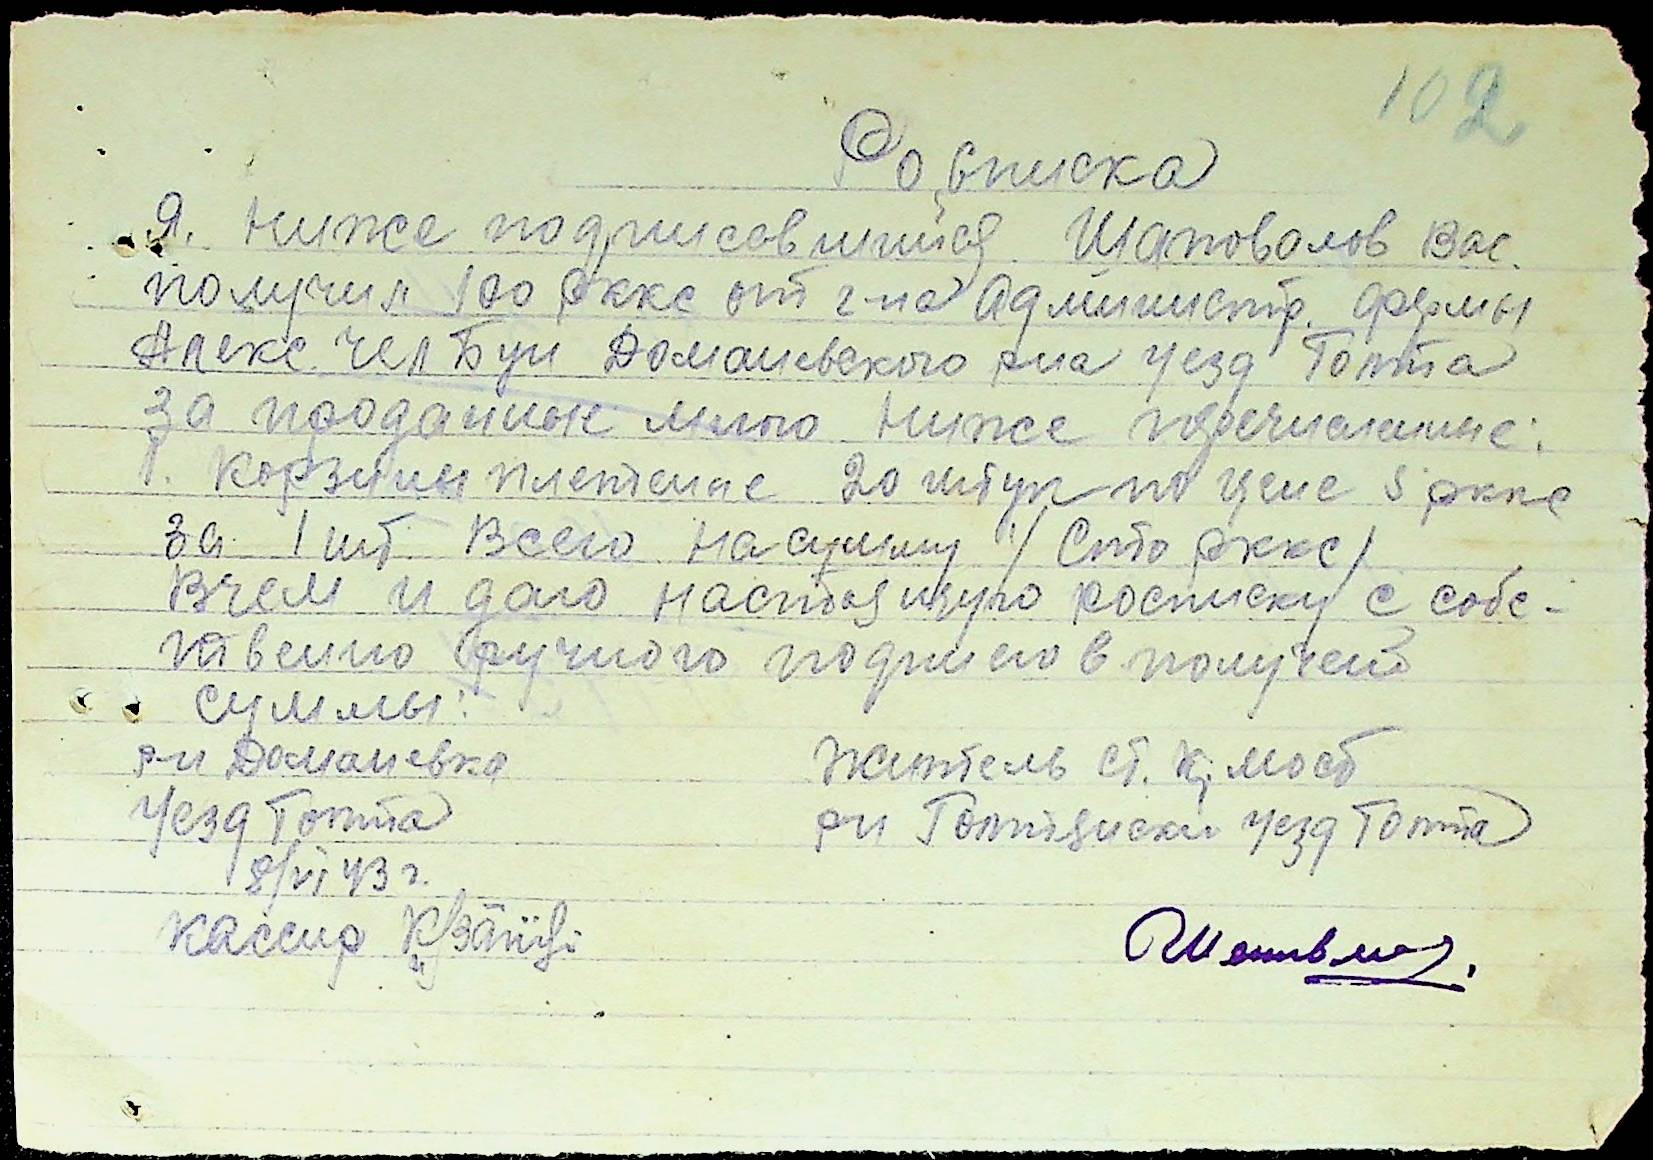 102
Росписка
Я. ниже подписавшийся Шаповалов Вас.
получил 100 рккс от г-на Администр. фермы
Алекс. чел Бун Доманевского р-на уезд Голта
за проданые мною ниже перечисленые:
1. Корзины плетеные 20 штук по цене 5 рккс
за 1 шт. Всего на сумму /Сто рккс/
В чем и даю настоящую росписку с собс-
твенно ручного подписю в получен
суммы:
р-н Доманевка
Уезд Голта
8/VI 43 г.
Кассир
Житель ст. К. мост
р-н Голтянски уезд Голта